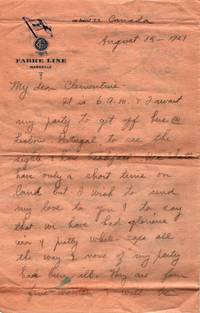 Canada
August 15 - 1921
FABRE LINE
MARSEILLE
My dear Clementine:
It is 6 a.m. & I await
my party to get off here @
Lisbon Portugal to see the
sights & have breakfast. We
have only a short time on
land but I wish to send
my love to you & to say
that we have had glorious
& pretty white caps all
the way & none of my party
has been ill. They are four
will be